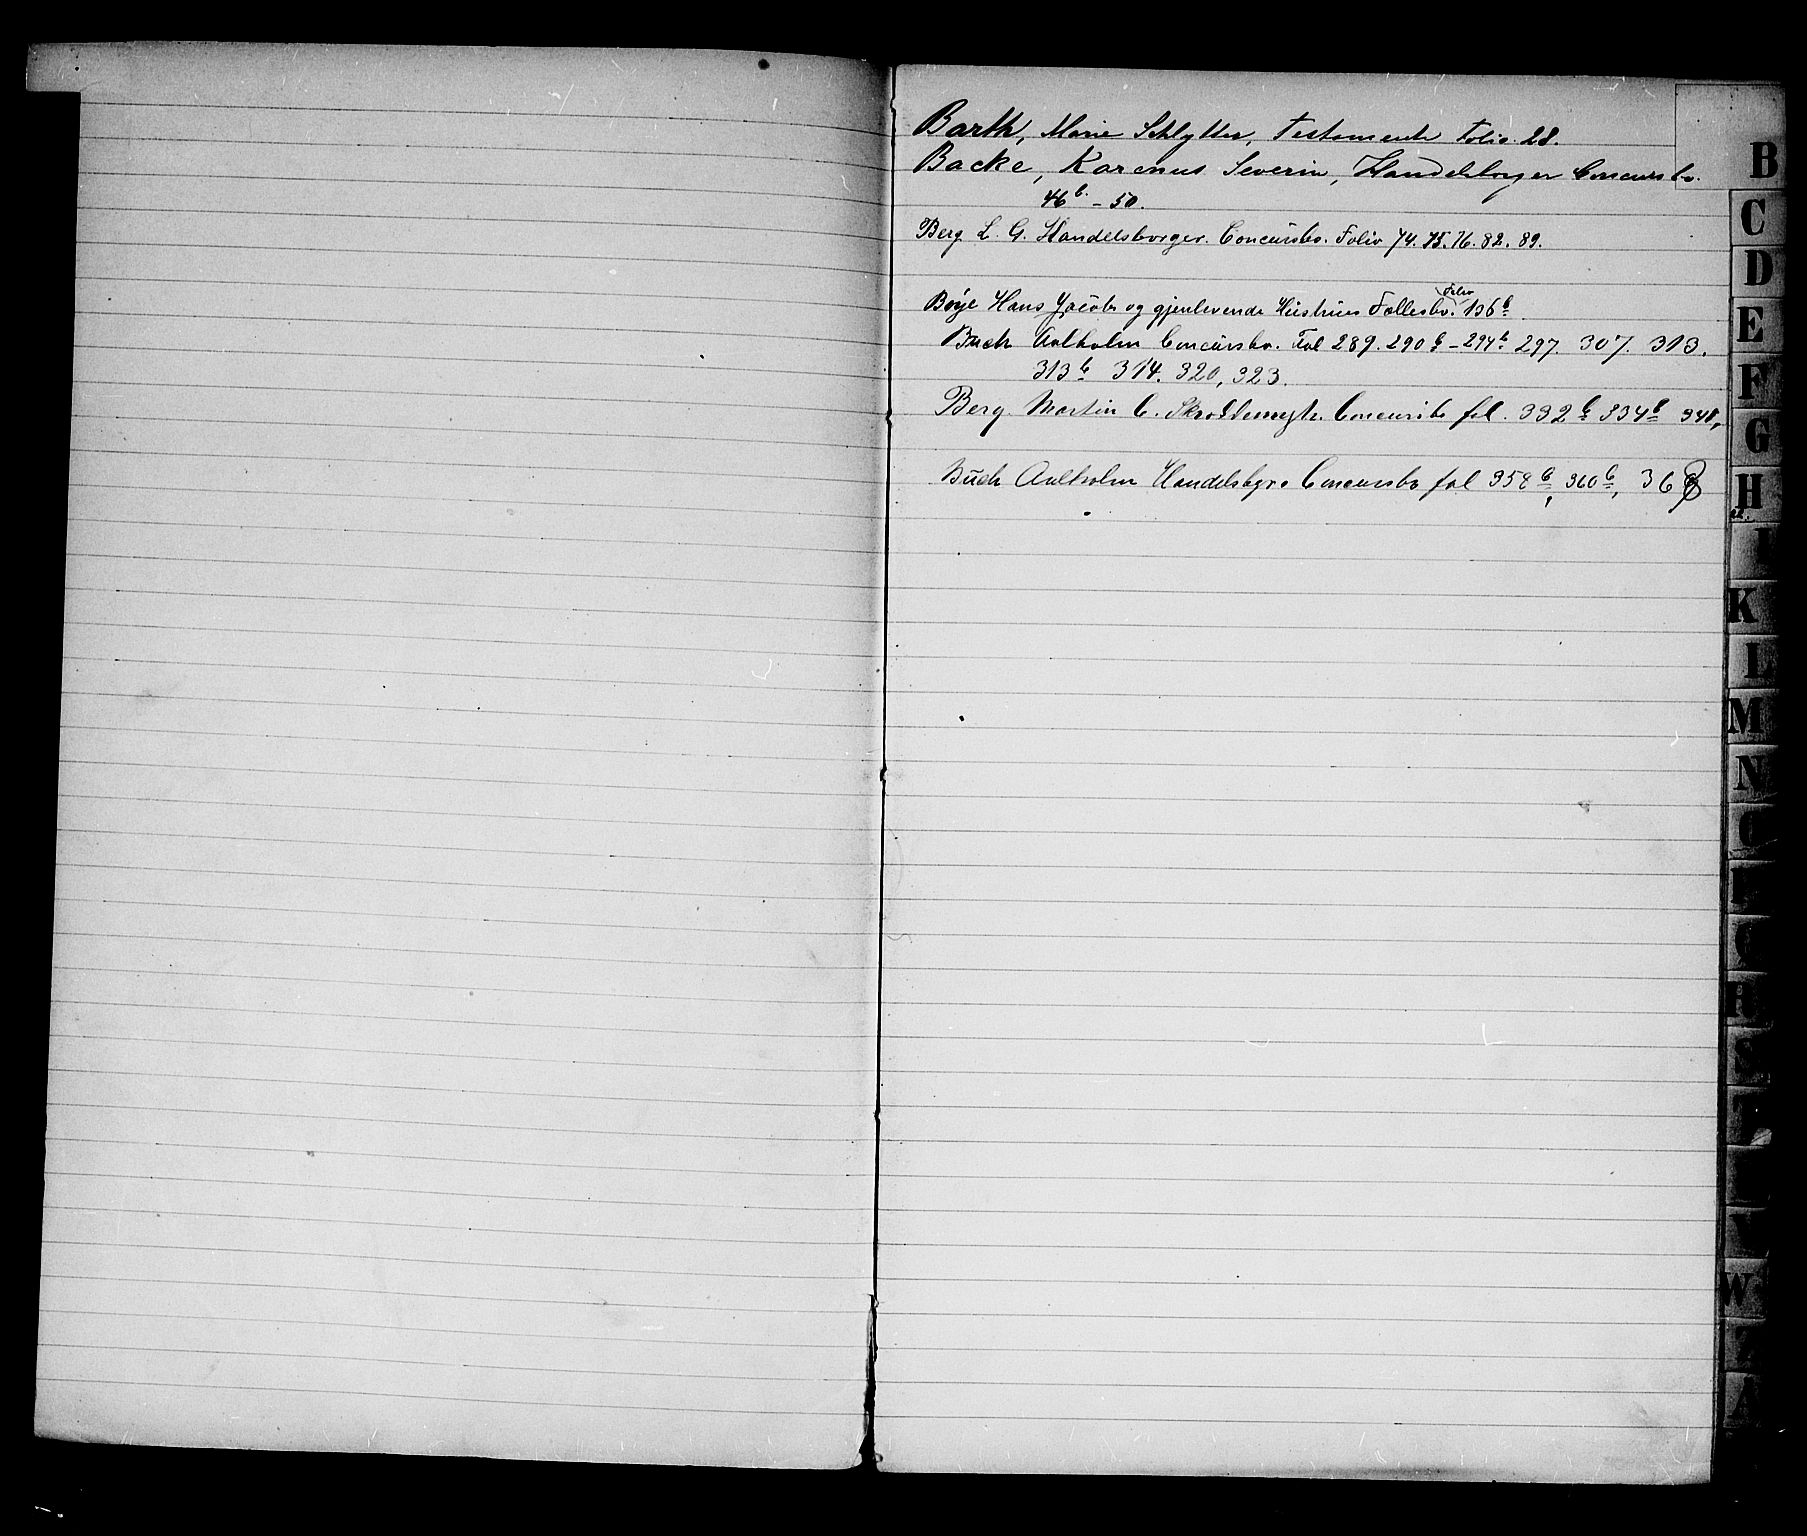 Barth, Marie Schlytter, Testamente Folio. 28.
Backe, Karenus Severin, Handelsborger Concursbo.
46 b. - 50.
Berg L. G. Handelsborger. Concursbo. Folio 74. 75. 76. 82. 89.
Folio
Böye Hans Jacobs og gjenlevende Hustrues Fællesbo. 136 b
Buch Aalholm Concursbo. Fol 289. 290 b - 294 b 297. 307. 313.
313 b 314. 320, 323.
Berg Martin C. Concursbo fol. 332 b 334 b 348,
Buch Aalholm Handelsbgr. Concursbo fol 358 b, 360 b, 368
B
C
D
E
F
G
H
I
K
L
M
N
O
P
Q
R
S
T
V
W
Z